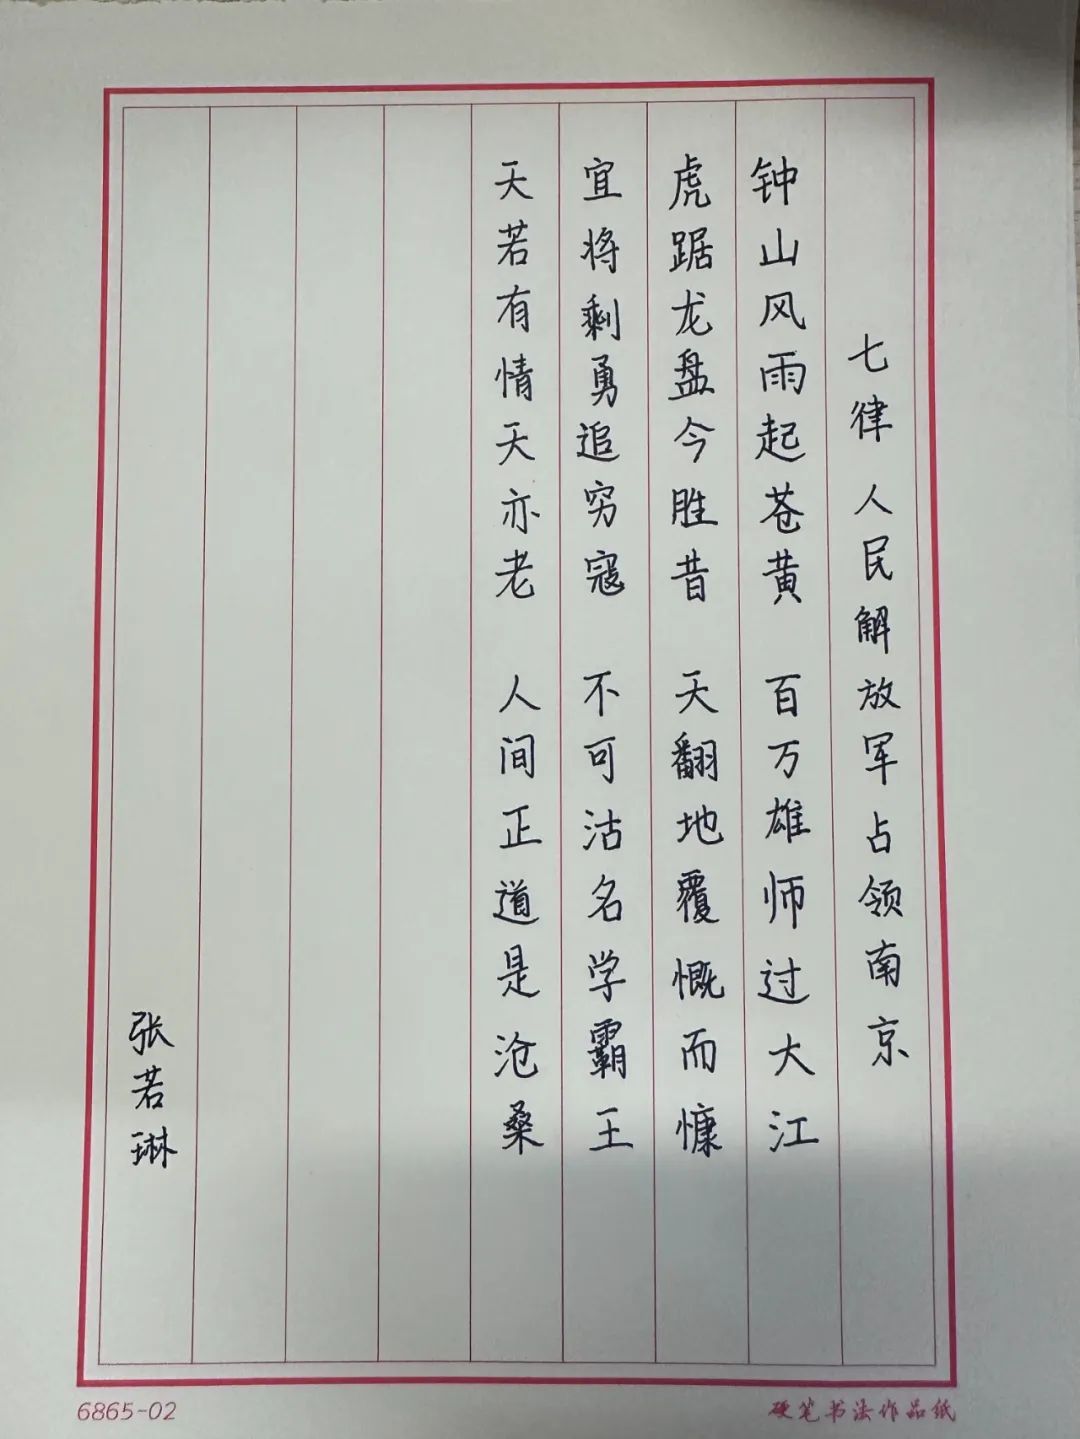 七律 人民解放军占领南京
钟山风雨起苍黄 百万雄师过大江
虎踞龙盘今胜昔 天翻地覆慨而慷
宜将剩勇追穷寇 不可沽名学霸王
天若有情天亦老 人间正道是沧桑
张若琳
6865-02
硬笔书法作品纸